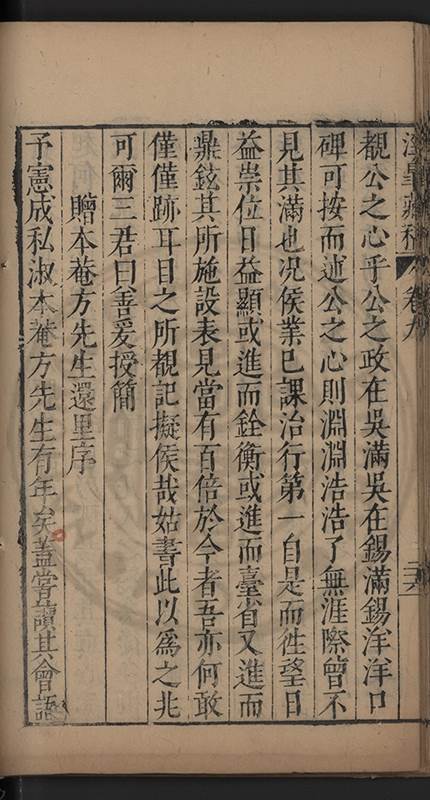 涇臯藏稿 卷九 二六
覩公之心乎公之政在吳滿吳在錫滿錫洋洋口
碑可按而述公之心則淵淵浩浩了無涯際曾不
見其滿也况侯業已課治行第一自是而徃望日
益崇位日益顯或進而銓衡或進而臺省又進而
鼎鉉其所施設表見當有百倍於今者吾亦何敢
僅僅跡耳目之所覩記擬侯哉姑書此以爲之兆
可爾三君曰善爰授簡
贈本菴方先生還里序
予憲成私淑本菴方先生有年矣蓋嘗讀其會語